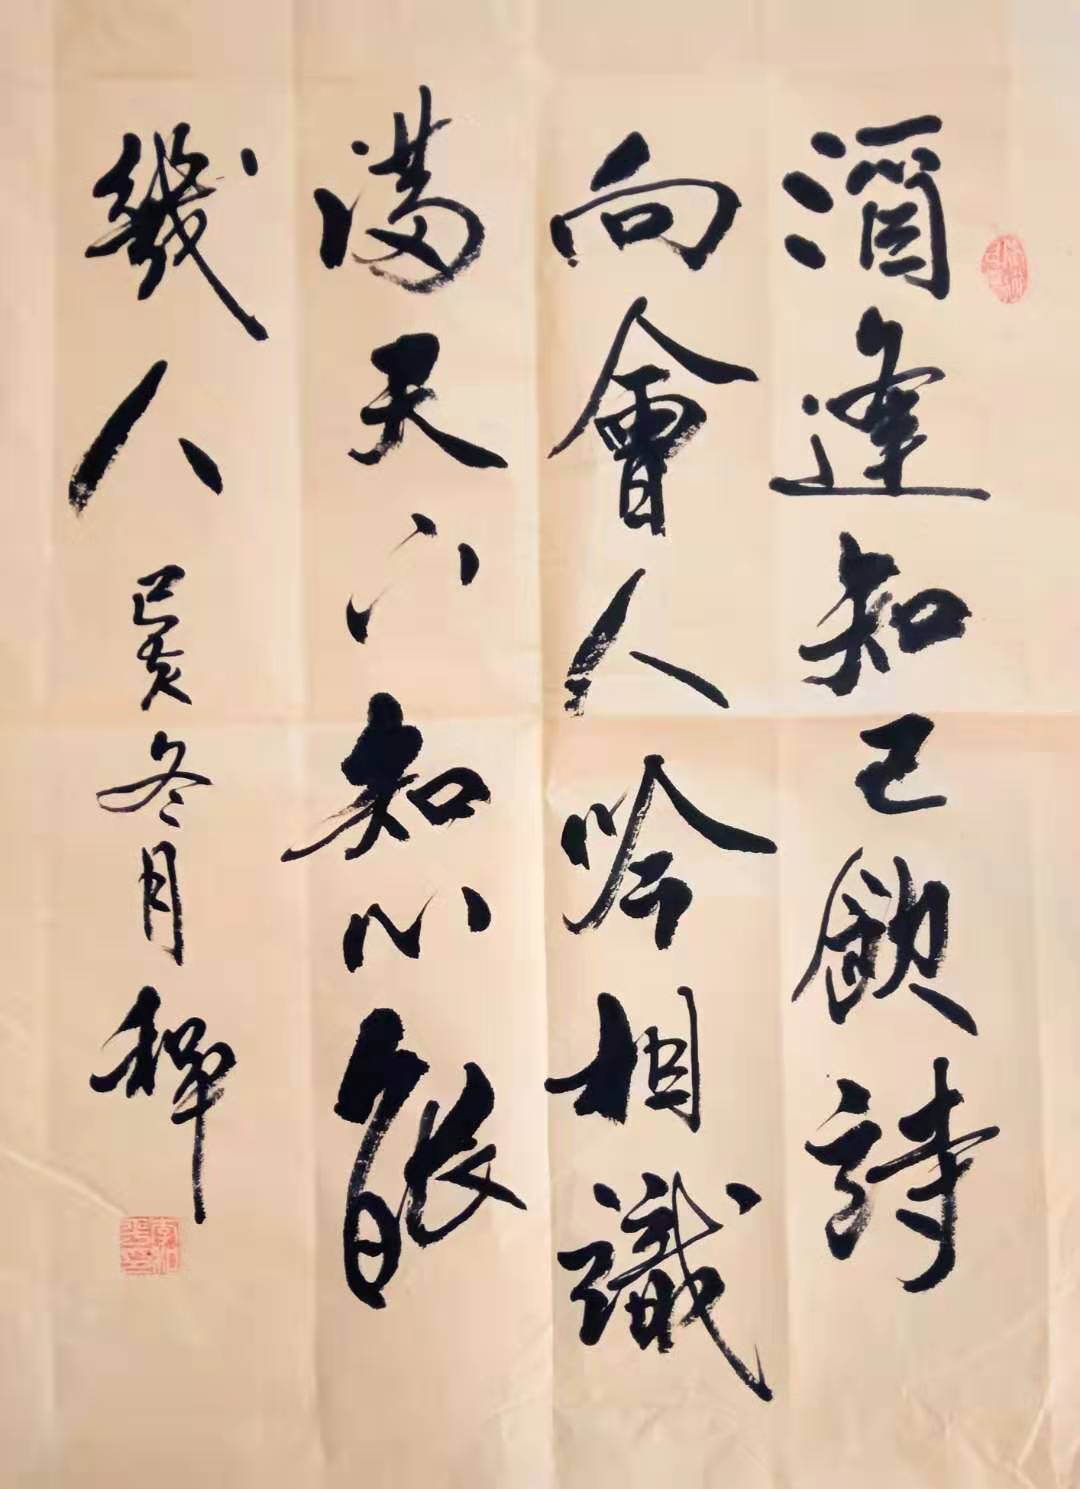 酒逢知己飲詩
向會人吟相識
滿天下知心能
幾人 己亥冬月 和平
李和平印